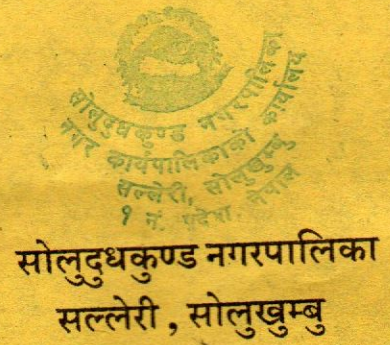 सोलुदुधकुण्ड नगरपालिका
नगर कार्यपालिकाको कार्यालय
सल्लेरी, सोलुखुम्बु
१ नं. प्रदेश, नेपाल
सोलुदुधकुण्ड नगरपालिका
सल्लेरी , सोलुखुम्बु